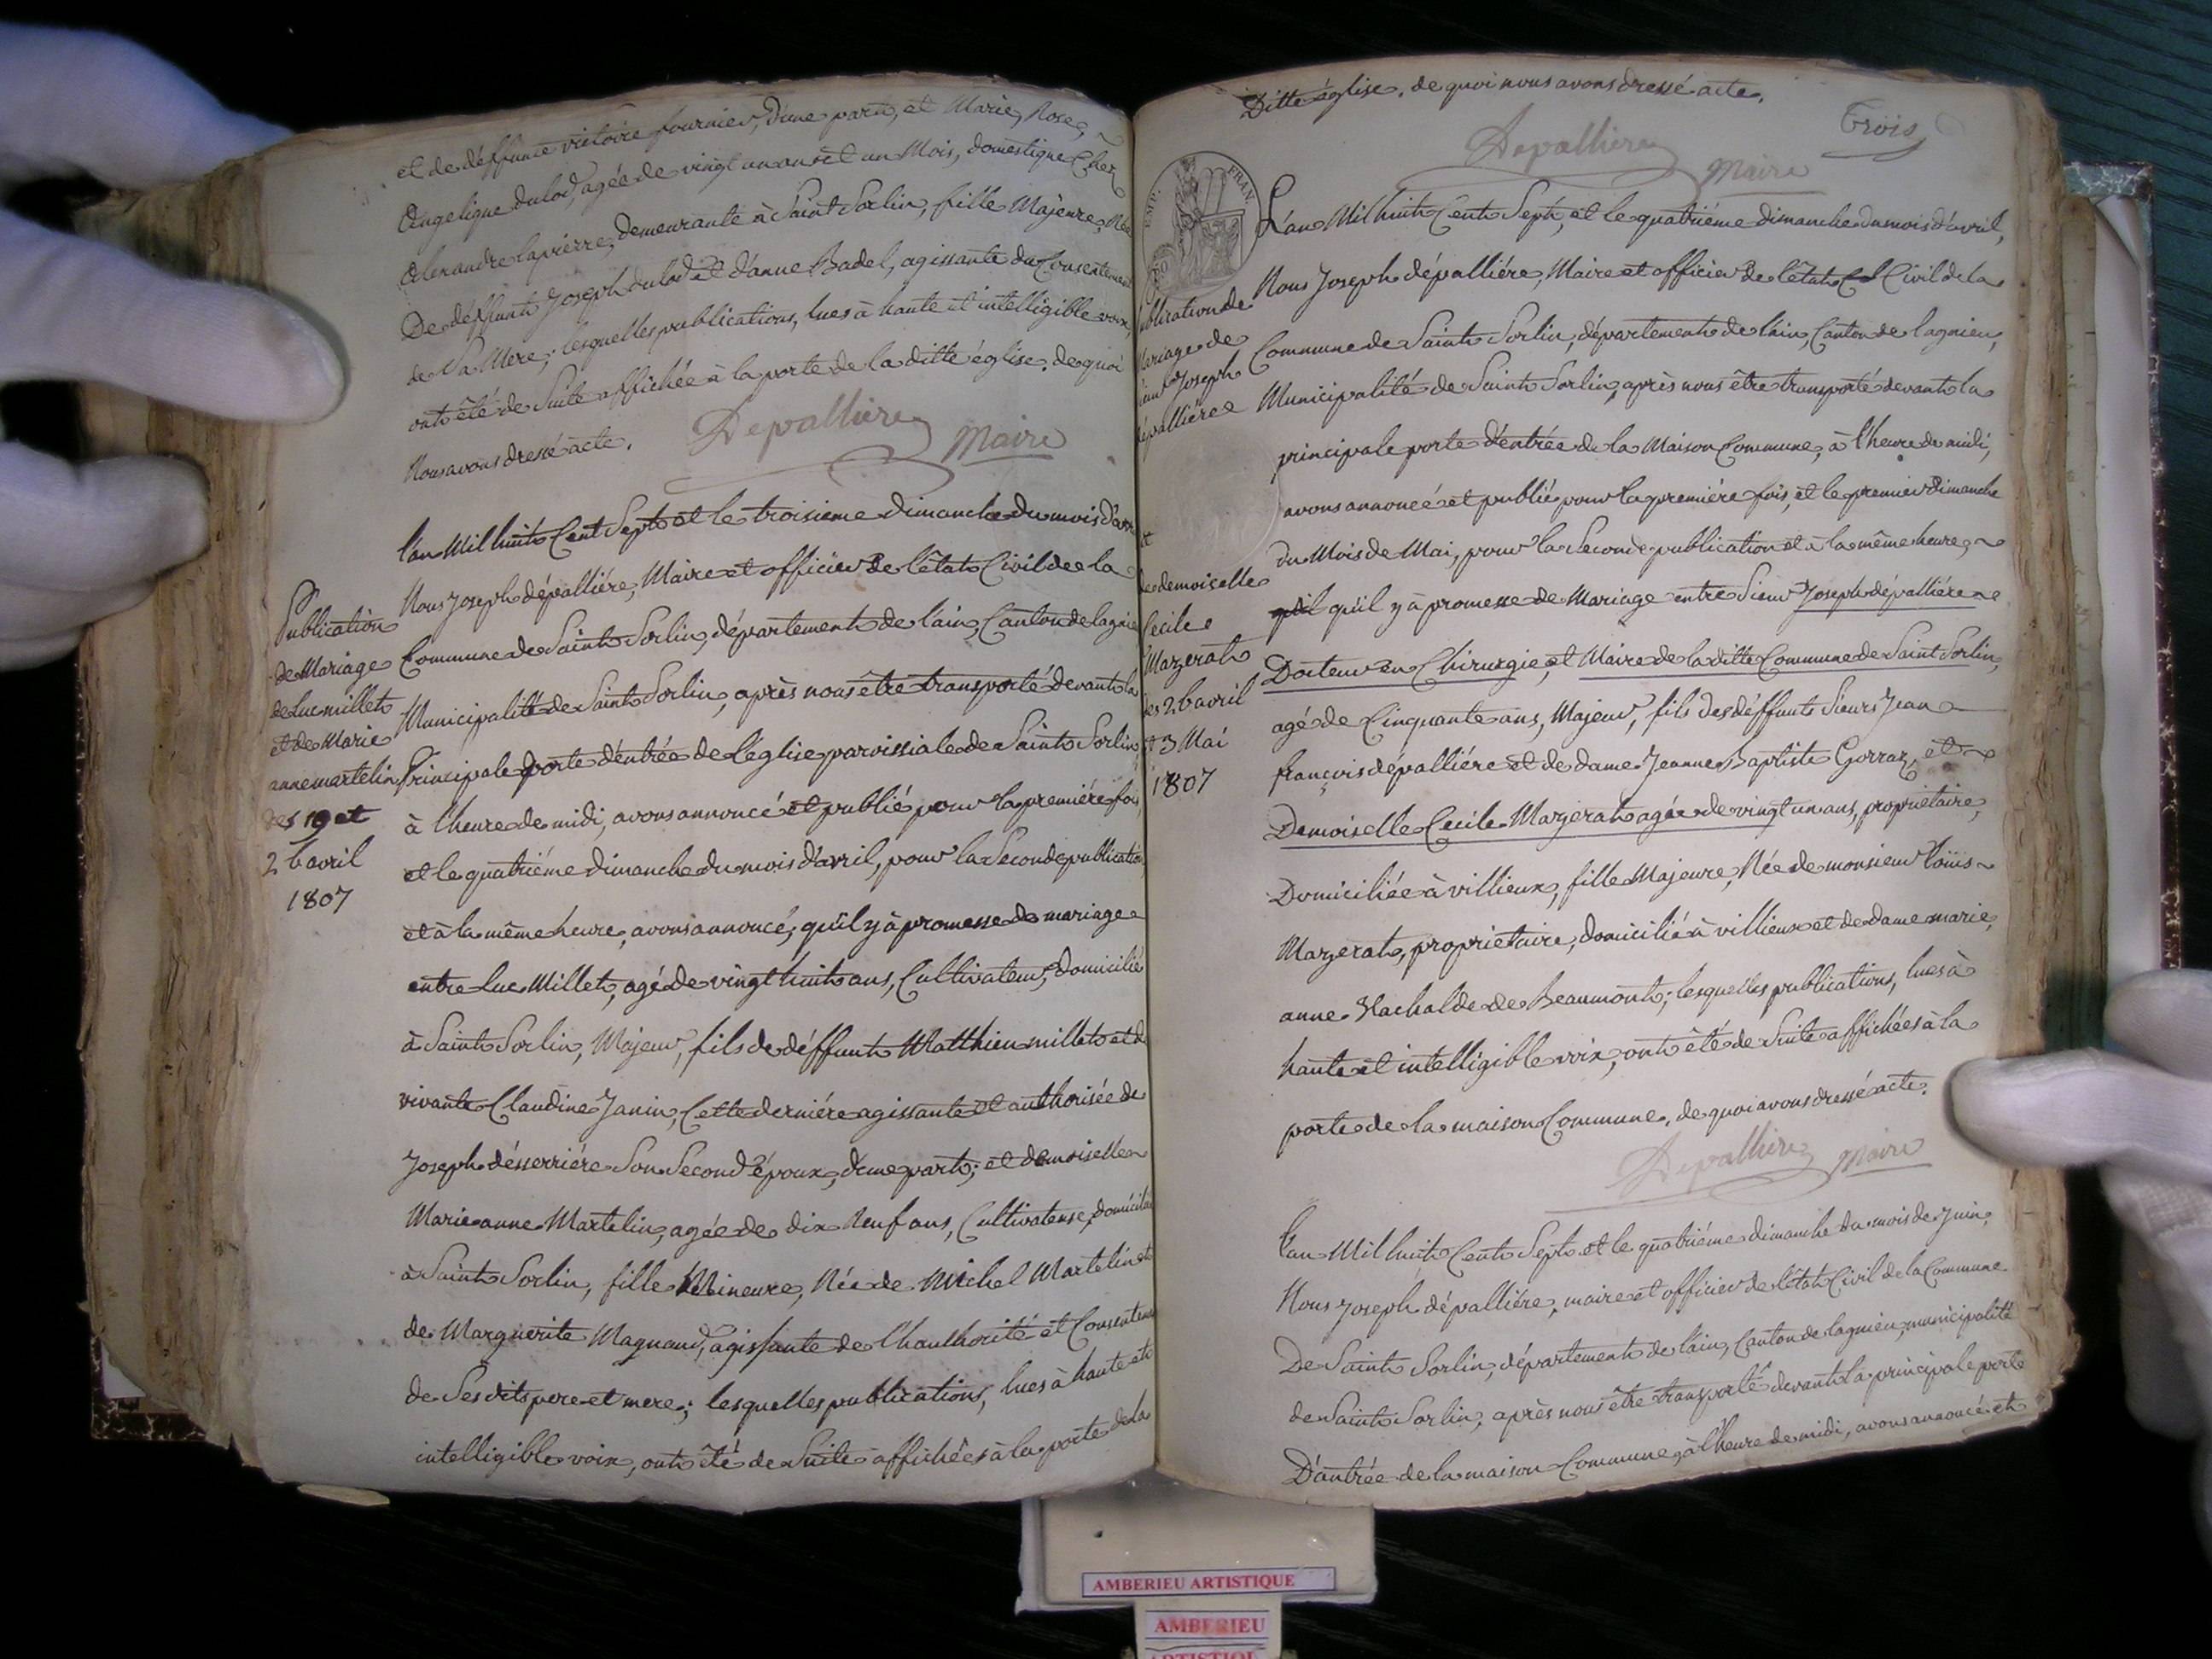 et de déffunte victoire fournier, d'une part, et Marie, Rose,
Angelique dulod, agée de vingt un ans et un Mois, domestique Chez
Alexandre lapierre, demeurante à Saint Sorlin, fille Majeure, Née
De déffunt Joseph dulod et d'anne Badel, agissante du Consentement
de Sa Mere; lesquelles publications, lues à haute et intelligible voix,
ont été de Suite affichée à la porte de la ditte église. de quoi
Nous avons dressé acte.
Depallière Maire
l'an Mil huit Cent Sept et le troisieme dimanche du mois d'avr
Nous Joseph dépalliére, Maire et officier de l'état Civil de la
Commune de Saint Sorlin, département de l'ain, Canton de lagnie
Municipalité de Saint Sorlin, après nous être transporté devant la
Principale porte d'entrée de l'église parroissiale de Saint Sorlin,
à l'heure de midi, avons annoncé et publié pour la premiére fois,
et le quatriéme dimanche du mois d'avril, pour la Seconde publication
et à la même heure, avons annoncé, qu'il y à promesse de mariage
entre Luc Millet, agé de vingt huit ans, Cultivateur, domicilié
à Saint Sorlin, Majeur, fils de déffunt Matthieu millet et de
vivante Claudine Janin, Cette derniére agissante et authorisée de
Joseph désserriére Son Second époux, d'une part; et demoiselle
Marie anne Martelin, agée de dix Neuf ans, Cultivateuse, domiciliée
à Saint Sorlin, fille Mineure, Née de Michel Martelin et
de Marguerite Magnand, agissante de l'hauthorité et Consenteme
de Ses dits pere et mere; lesquelles publications, lues à haute et
intelligible voix, ont été de Suite affichées à la porte de la
Publication
de Mariage
de Luc millet
et de Marie
anne martelin
des 19 et
26 avril
1807
Ditte église. de quoi nous avons dressé acte.
Depallière Maire
Trois
EMP. FRAN.
L'an Mil huit Cent Sept, et le quatriéme dimanche du mois d'avril,
Nous Joseph dépalliére, Maire et officier de l'état Civil de la
Commune de Saint Sorlin, département de l'ain, Canton de lagnieu,
Municipalité de Saint Sorlin, après nous être transporté devant la
principale porte d'entrée de la Maison Commune, à l'heure de midi,
avons annoncé et publié pour la premiére fois, et le premier Dimanche
du Mois de Mai, pour la Seconde publication et à la même heure,
qu'il qu'il y à promesse de Mariage entre Sieur Joseph dépalliére
Docteur en Chirurgie, et Maire de la ditte Commune de Saint Sorlin,
agé de Cinquante ans, Majeur, fils des déffunts Sieurs Jean
françois dépalliére et de dame Jeanne Baptiste Gorraz, et
Demoiselle Cecile Mazerat agée de vingt un ans, propriétaire,
Domiciliée à villieux, fille Majeure, Née de monsieur loüis
Mazerat, propriétaire, domicilié à villieux et de dame marie,
anne Stachalde de Beaumont; lesquelles publications, lues à
haute et intelligible voix, ont été de Suite affichées à la
porte de la maison Commune. de quoi avons dressé acte.
Depallière Maire
ublication de
Mariage de
Joseph
dépalliére
et
de demoiselle
Cecile
Mazerat
es 26 avril
et 3 Mai
1807
L'an Mil huit Cent Sept et le quatriéme dimanche du mois de Juin,
Nous Joseph dépalliére, maire et officier de l'état Civil de la Commune
De Saint Sorlin, département de l'ain, Canton de lagnieu, municipalité
de Saint Sorlin, après nous être transporté devant la principale porte
D'antrée de la maison Commune, à l'heure de midi, avons annoncé et
AMBERIEU ARTISTIQUE
AMBERIEU
ARTISTIQUE